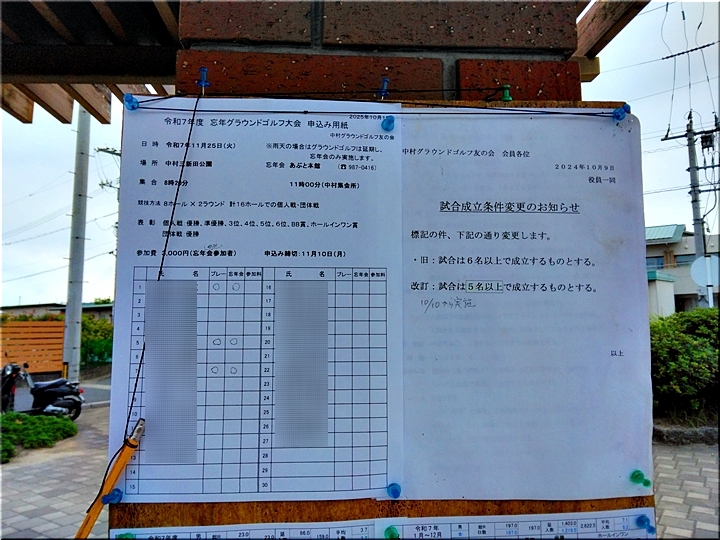 令和7年度 忘年グラウンドゴルフ大会 申込み用紙
中村グラウンドゴルフ友の会
日 時 令和7年11月25日(火) ※雨天の場合はグラウンドゴルフは延期し、
忘年会のみ実施します。
場 所 中村三新田公園 忘年会 あぶと本館 (☎987-0416)
集 合 8時20分 11時00分(中村集会所)
競技方法 8ホール × 2ラウンド 計16ホールでの個人戦・団体戦
表 彰 個人戦:優勝、準優勝、3位、4位、5位、6位、BB賞、ホールインワン賞
団体戦:優勝
参加費 3,000円(忘年会参加者) 申込み締切:11月10日(月)
氏 名 プレー 忘年会 参加料 氏 名 プレー 忘年会 参加料
1 ○ ○ 16
2
3
5 ○ ○ 20
6 21
7 ○ ○ 22
8 23
9 24
10 25
26
27
13
14 29
15 30
中村グラウンドゴルフ友の会 会員各位
2024年10月9日
役員一同
試合成立条件変更のお知らせ
標記の件、下記の通り変更します。
・旧:試合は6名以上で成立するものとする。
改訂:試合は5名以上で成立するものとする。
10/10から実施
以上
令和7年
1月~12月
ホールインワン